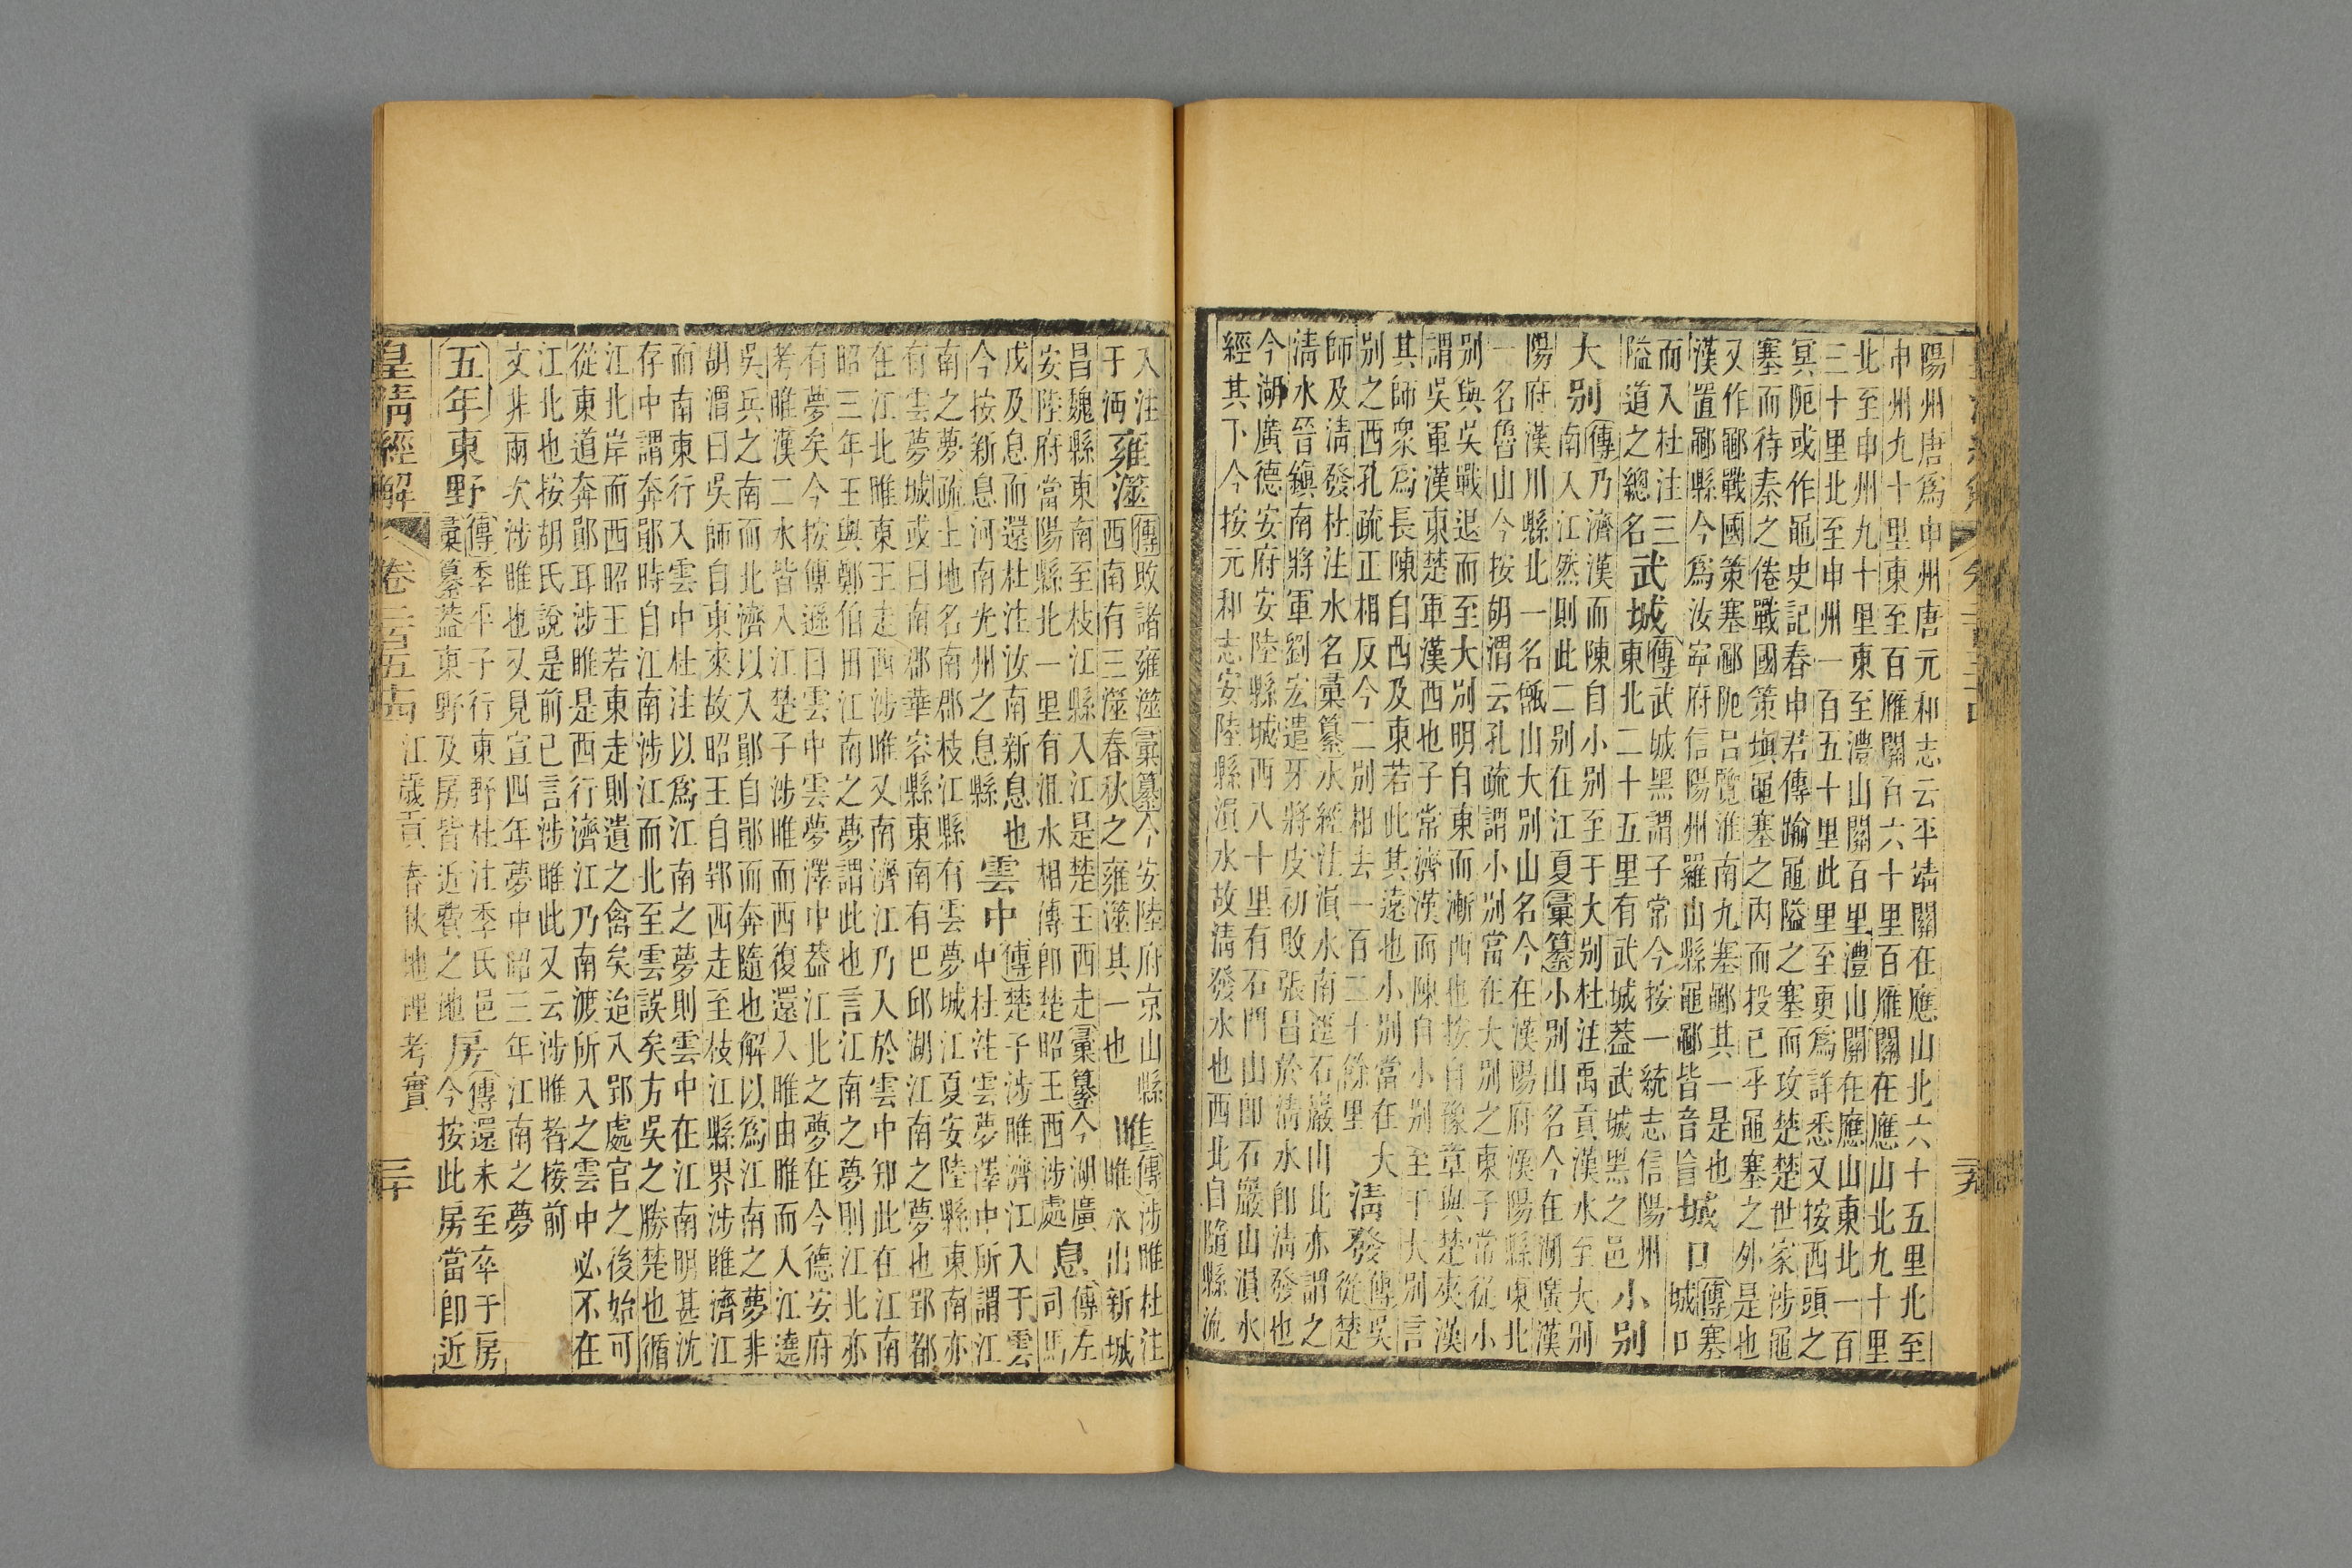 陽州唐爲申州唐元和志云平靖關在應山北六十五里北至
申州九十里東至百雁關百六十里百雁關在應山北九十里
北至申州九十里東至澧山關百里澧山關在應山東北一百
三十里北至申州一百五十里此里至更爲詳悉又按西頭之
冥阨或作黽史記春申君傳踰黽隘之塞而攻楚楚世家涉黽
塞而待秦之倦戰國策塡黽塞之內而投己乎黽塞之外是也
又作鄳戰國策塞鄳阨呂覽淮南九塞鄳其一是也
漢置鄳縣今爲汝寧府信陽州羅山縣黽鄳皆音盲
城口
傳塞
城口
而入杜注三
隘道之總名
武城
傳武城黑謂子常今按一統志信陽州
東北二十五里有武城蓋武城黑之邑
小别
大别
傳乃濟漢而陳自小别至于大别杜注禹貢漢水至大别
南入江然則此二别在江夏彙纂小别山名今在湖廣漢
陽府漢川縣北一名甑山大别山名今在漢陽府漢陽縣東北
一名魯山今按胡渭云孔疏謂小别當在大别之東子常從小
别與吳戰退而至大别明自東而漸西也按自豫章與楚夾漢
謂吳軍漢東楚軍漢西也子常濟漢而陳自小别至于大别言
其師衆爲長陳自西及東若此其遠也小别當在大
别之西孔疏正相反今二别相去一百二十餘里
清發
傳吳
從楚
師及淸發杜注水名彙纂水經注溳水南逕石巖山北亦謂之
淸水晉鎭南將軍劉宏遣牙將皮初敗張昌於淸水卽淸發也
今湖廣德安府安陸縣城西八十里有石門山卽石巖山溳水
經其下今按元和志安陸縣溳水故淸發水也西北自隨縣流
二十九
入注
于沔
雍澨
傳敗諸雍澨彙纂今安陸府京山縣
西南有三澨春秋之雍澨其一也
睢
傳涉睢杜注
睢水出新城
昌魏縣東南至枝江縣入江是楚王西走彙纂今湖廣
安陸府當陽縣北一里有沮水相傳卽楚昭王西涉處
息
傳左
司馬
戊及息而還杜注汝南新息也
今按新息河南光州之息縣
雲中
傳楚子涉睢濟江入于雲
中杜注雲夢澤中所謂江
南之夢疏土地名南郡枝江縣有雲夢城江夏安陸縣東南亦
有雲夢城或曰南郡華容縣東南有巴邱湖江南之夢也郢都
在江北睢東王走西涉睢又南濟江乃入於雲中知此在江南
昭三年王與鄭伯田江南之夢謂此也言江南之夢則江北亦
有夢矣今按傳遜曰雲中雲夢澤中蓋江北之夢在今德安府
考睢漢二水皆入江楚子涉睢而西復還入睢由睢而入江遶
吳兵之南而北濟以入鄖自鄖而奔隨也解以爲江南之夢非
胡渭曰吳師自東來故昭王自郢西走至枝江縣界涉睢濟江
而南東行入雲中杜注以爲江南之夢則雲中在江南明甚沈
存中謂奔鄖時自江南涉江而北至雲誤矣方吳之勝楚也循
江北岸而西昭王若東走則遺之禽矣迨入郢處官之後始可
從東道奔鄖耳涉睢是西行濟江乃南渡所入之雲中必不在
江北也按胡氏說是前已言涉睢此又云涉睢者接前
文非兩次涉睢也又見宣四年夢中昭三年江南之夢
五年
東野
傳季平子行東野杜注季氏邑
彙纂蓋東野及房皆近費之地
房
傳還未至卒于房
今按此房當卽近
皇清經解
卷二百五十四
江歲貢春秋地理考實
三十